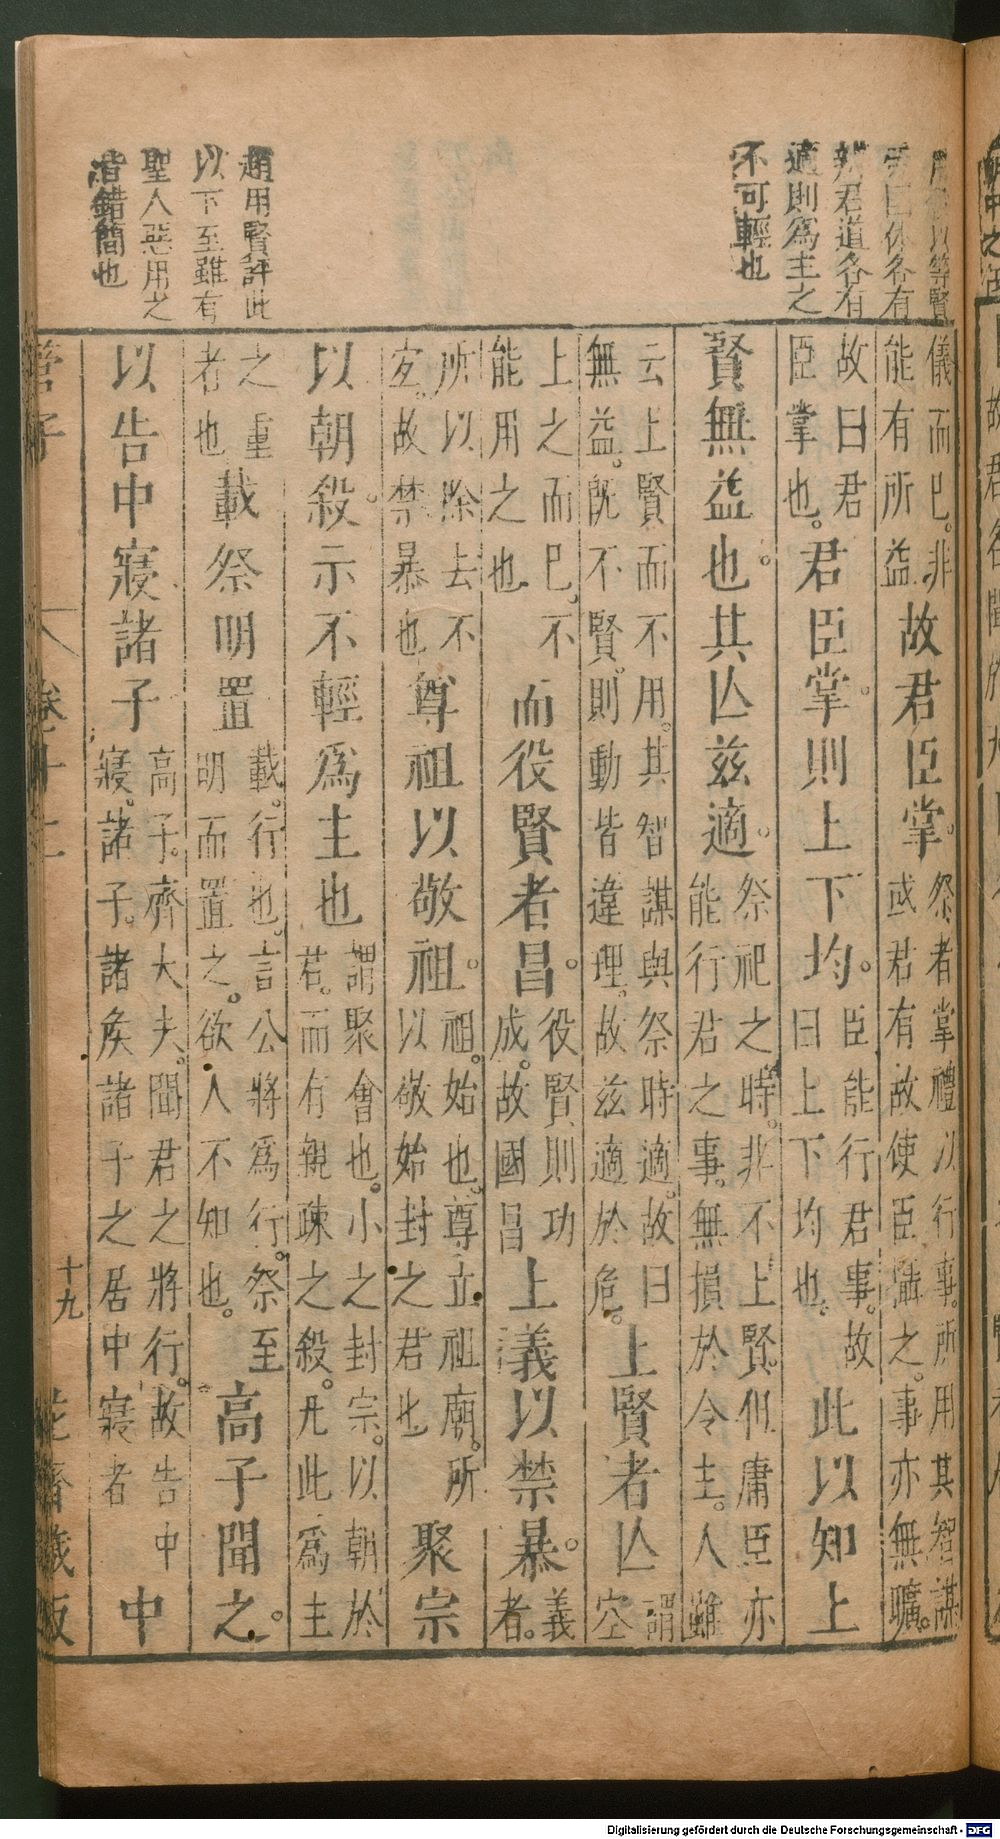 以等賢
曰休各有
辨君道各有
適則爲主之
不可輕也
趙用賢評此
以下至雖有
聖人惡用之
皆錯簡也
儀而巳。非
能有所益
故君臣掌。
祭者掌禮以行事。所用其智謀
或君有故使臣攝之。事亦無曠。
故曰君
臣掌也。
君臣掌。則上下均。
臣能行君事。故
曰上下均也。
此以知上
賢無益也。其亾茲適。
祭祀之時。非不上賢。但庸臣亦
能行君之事。無損於令主。人雖
云上賢而不用。其智謀與祭時適。故曰
無益。旣不賢。則動皆違理。故茲適於危。
上賢者亾
謂
空
上之而巳。不
能用之也
而役賢者昌。
役賢則功
成。故國昌
上義以禁暴。
義
者。
所以除去不
宐。故禁暴也
尊祖以敬祖。
祖。始也。尊立祖廟。所
以敬始封之君也
聚宗
以朝殺。示不輕爲主也
謂聚會也。小之封宗。以朝於
君。而有親疎之殺。凡此爲主
之重
者也
載祭明置
載。行也。言公將爲行。祭至
明而置之。欲人不知也。
高子聞之。
以告中寢諸子
高子。齊大夫。聞君之將行。故告中
寢。諸子。諸侯諸子之居中寢者
中
管子
卷十二
十九
花齋藏板
Digitalisierung gefördert durch die Deutsche Forschungsgemeinschaft - DFG